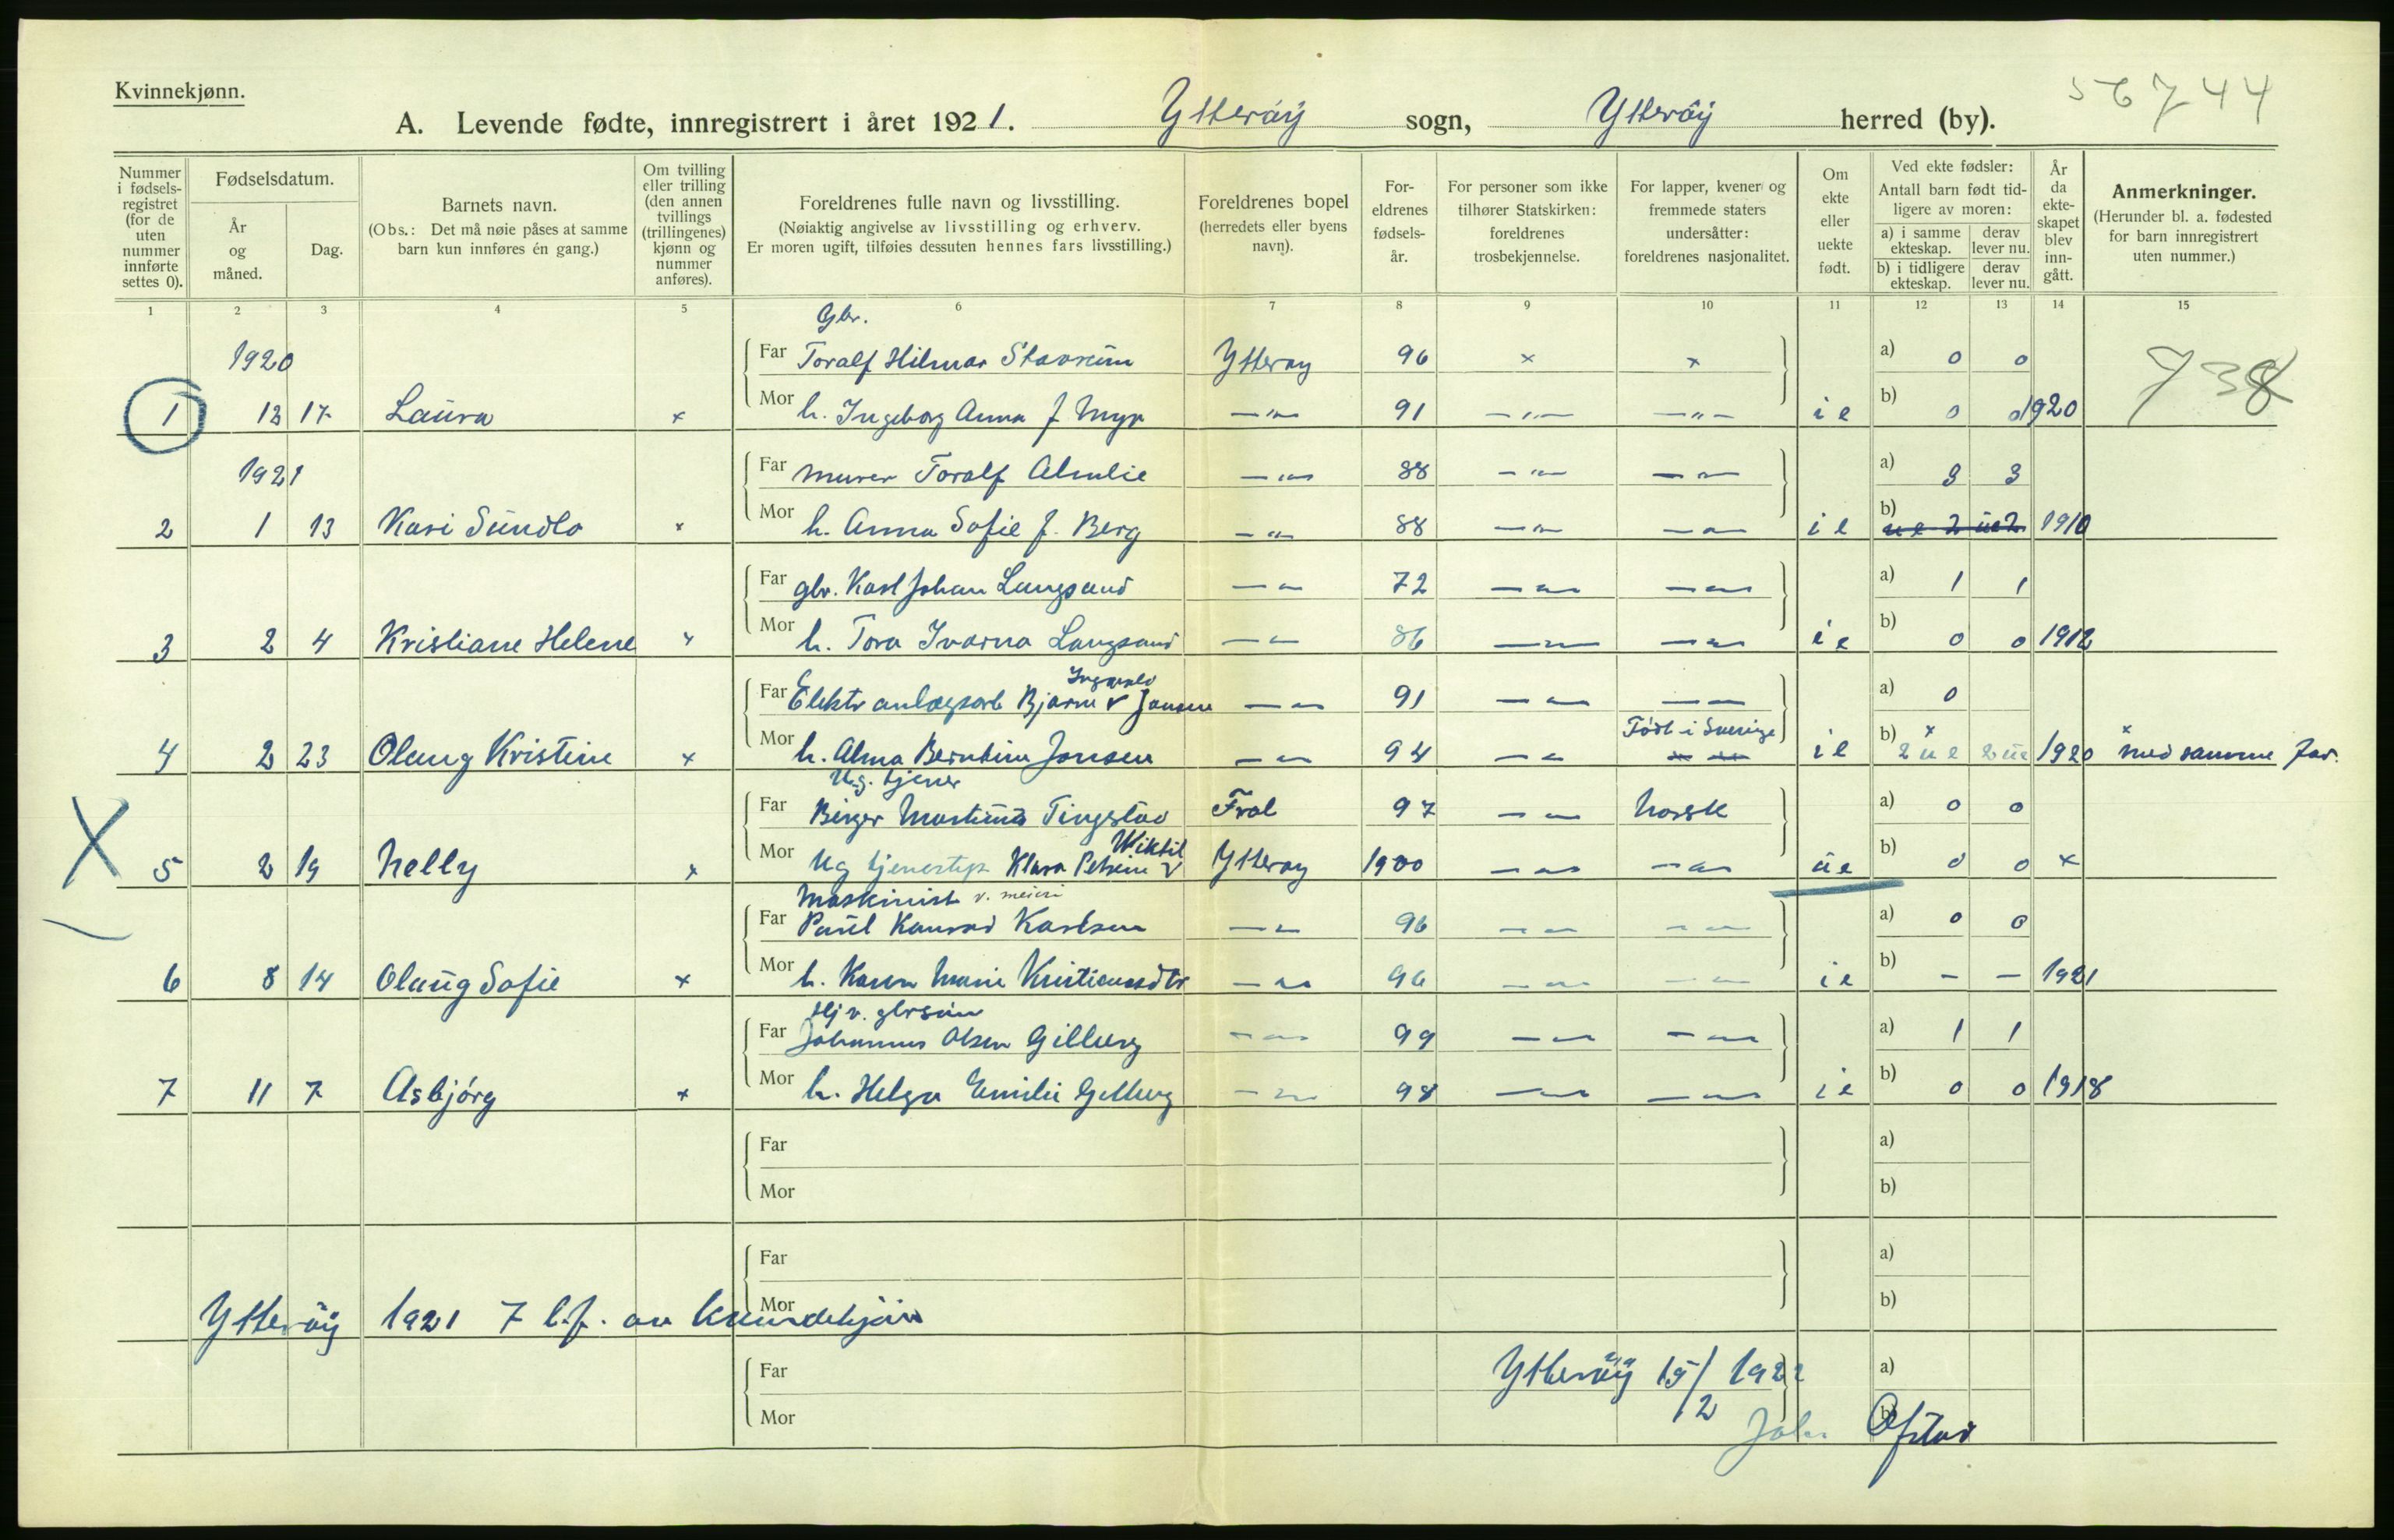 Kvinnekjønn.
56744
A. Levende fødte, innregistrert i året 1921. Ytterøy sogn, Ytterøy herred (by).
Nummer i fødselsregistret (for de uten nummer innførte settes 0).
Fødselsdatum.
År og måned.
Dag.
Barnets navn.
(Obs.: Det må nøie påses at samme barn kun innføres én gang.)
Om tvilling eller trilling (den annen tvillings (trillingenes) kjønn og nummer anføres).
Foreldrenes fulle navn og livsstilling.
(Nøiaktig angivelse av livsstilling og erhverv.
Er moren ugift, tilføies dessuten hennes fars livsstilling.)
Foreldrenes bopel (herredets eller byens navn).
Foreldrenes fødselsår.
For personer som ikke tilhører Statskirken: foreldrenes trosbekjennelse.
For lapper, kvener og fremmede staters undersåtter: foreldrenes nasjonalitet.
Om ekte eller uekte født.
Ved ekte fødsler:
Antall barn født tidligere av moren:
a) i samme ekteskap.
derav lever nu.
b) i tidligere ekteskap.
derav lever nu.
År da ekteskapet blev inngått.
Anmerkninger.
(Herunder bl. a. fødested for barn innregistrert uten nummer.)
1 2 3 4 5 6 7 8 9 10 11 12 13 14 15
Gbr.
1920 Far Toralf Hilmar Stavrum Ytterøy 96 × × a) 0 0
738
1 12 17 Laura × Mor h. Ingeborg Anna f Myr —"— 91 —"— —"— i e b) 0 0 1920
1921 Far murer Toralf Almlie —"— 88 —"— —"— a) 3 3
2 1 13 Kari Sundlo × Mor h. Anna Sofie f. Berg —"— 88 —"— —"— i e b) ue 2 ue 2 1910
Far gbr. Karl Johan Langsand —"— 72 —"— —"— a) 1 1
3 2 4 Kristiane Helene × Mor h. Tora Ivarna Langsand —"— 86 —"— —"— i e b) 0 0 1912
Ingvald
Far Elektr anlægsarb Bjarne v Jonsen —"— 91 —"— —"— a) 0
Født i Sverige
4 2 23 Olaug Kristine × Mor h. Alma Berntine Jonsen —"— 94 —"— —"— i e b) × 2 u e 2 ue 1920 × med samme far.
Ug. tjener
Far Birger Martinus Tingstad Frol 97 —"— norsk a) 0 0
Wiktil
5 2 19 Nelly × Mor Ug tjenestep Klara Petrine v Ytterøy 1900 —"— —"— ue b) 0 0 ×
Maskinist v. meieri
Far Paul Konrad Karlsen —"— 96 —"— —"— a) 0 0
6 8 14 Olaug Sofie × Mor h. Karen Marie Kristiansdtr —"— 96 —"— —"— i e b) – – 1921
Hj v. gbrsøn
Far Johannes Olsen Gilberg —"— 99 —"— —"— a) 1 1
7 11 7 Asbjørg × Mor h. Helga Emilie Gilberg —"— 98 —"— —"— i e b) 0 0 1918
Far a)
Mor b)
Far a)
Mor b)
Ytterøy 1921 7 l.f. av kvindekjøn
Far Ytterøy 15/2 1922 a)
Mor b)
Joh. Ofstad